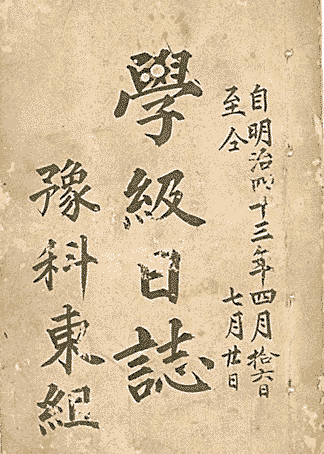 自明治四十三年四月拾六日
至仝七月廿日
學級日誌
豫科東組